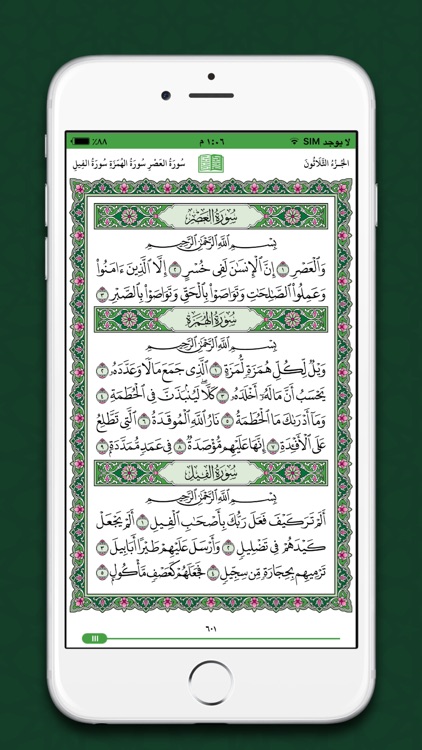 لا يوجد SIM ١:٠٦ م ٪٨٨
الجُزءُ الثَّلَاثُونَ سُورَةُ العَصْرِ سُورَةُ الهُمَزَةِ سُورَةُ الفِيلِ
سُورَةُ العَصْرِ
بِسْمِ ٱللَّهِ ٱلرَّحْمَٰنِ ٱلرَّحِيمِ
وَٱلْعَصْرِ ١ إِنَّ ٱلْإِنسَٰنَ لَفِى خُسْرٍ ٢ إِلَّا ٱلَّذِينَ ءَامَنُوا۟
وَعَمِلُوا۟ ٱلصَّٰلِحَٰتِ وَتَوَاصَوْا۟ بِٱلْحَقِّ وَتَوَاصَوْا۟ بِٱلصَّبْرِ ٣
سُورَةُ الهُمَزَةِ
بِسْمِ ٱللَّهِ ٱلرَّحْمَٰنِ ٱلرَّحِيمِ
وَيْلٌ لِّكُلِّ هُمَزَةٍ لُّمَزَةٍ ١ ٱلَّذِى جَمَعَ مَالًا وَعَدَّدَهُۥ ٢
يَحْسَبُ أَنَّ مَالَهُۥٓ أَخْلَدَهُۥ ٣ كَلَّا ۖ لَيُنۢبَذَنَّ فِى ٱلْحُطَمَةِ ٤
وَمَآ أَدْرَىٰكَ مَا ٱلْحُطَمَةُ ٥ نَارُ ٱللَّهِ ٱلْمُوقَدَةُ ٦ ٱلَّتِى تَطَّلِعُ
عَلَى ٱلْأَفْـِٔدَةِ ٧ إِنَّهَا عَلَيْهِم مُّؤْصَدَةٌ ٨ فِى عَمَدٍ مُّمَدَّدَةٍۭ ٩
سُورَةُ الفِيلِ
بِسْمِ ٱللَّهِ ٱلرَّحْمَٰنِ ٱلرَّحِيمِ
أَلَمْ تَرَ كَيْفَ فَعَلَ رَبُّكَ بِأَصْحَٰبِ ٱلْفِيلِ ١ أَلَمْ يَجْعَلْ
كَيْدَهُمْ فِى تَضْلِيلٍ ٢ وَأَرْسَلَ عَلَيْهِمْ طَيْرًا أَبَابِيلَ ٣
تَرْمِيهِم بِحِجَارَةٍ مِّن سِجِّيلٍ ٤ فَجَعَلَهُمْ كَعَصْفٍ مَّأْكُولٍۭ ٥
٦٠١